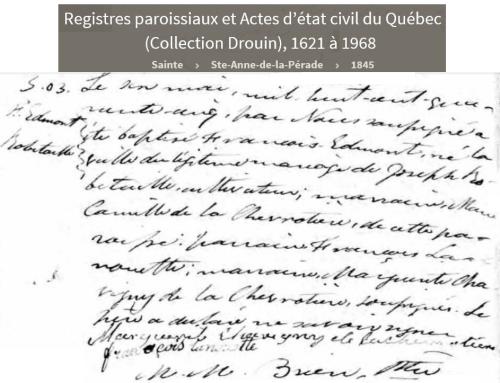 Registres paroissiaux et Actes d'état civil du Québec
(Collection Drouin), 1621 à 1968
Sainte › Ste-Anne-de-la-Pérade › 1845
S. 03. Le six mai, mil huit cent qua-
rante cinq, par Nous soussigné a
Fr. Edmont été baptisé François Edmont, né la
Robitaille veille du légitime mariage de Joseph Ro-
bitaille, cultivateur; marraine, Marie
Camille de la Chevrotière, de cette pa-
roisse; parrain François La-
nouette; marraine, Marguerite Cha
vigny de la Chevrotière, soussignés. Le
père a déclaré ne savoir signer
Marguerite Chavigny de
françois lanouette
M. M. Brien, Ptre